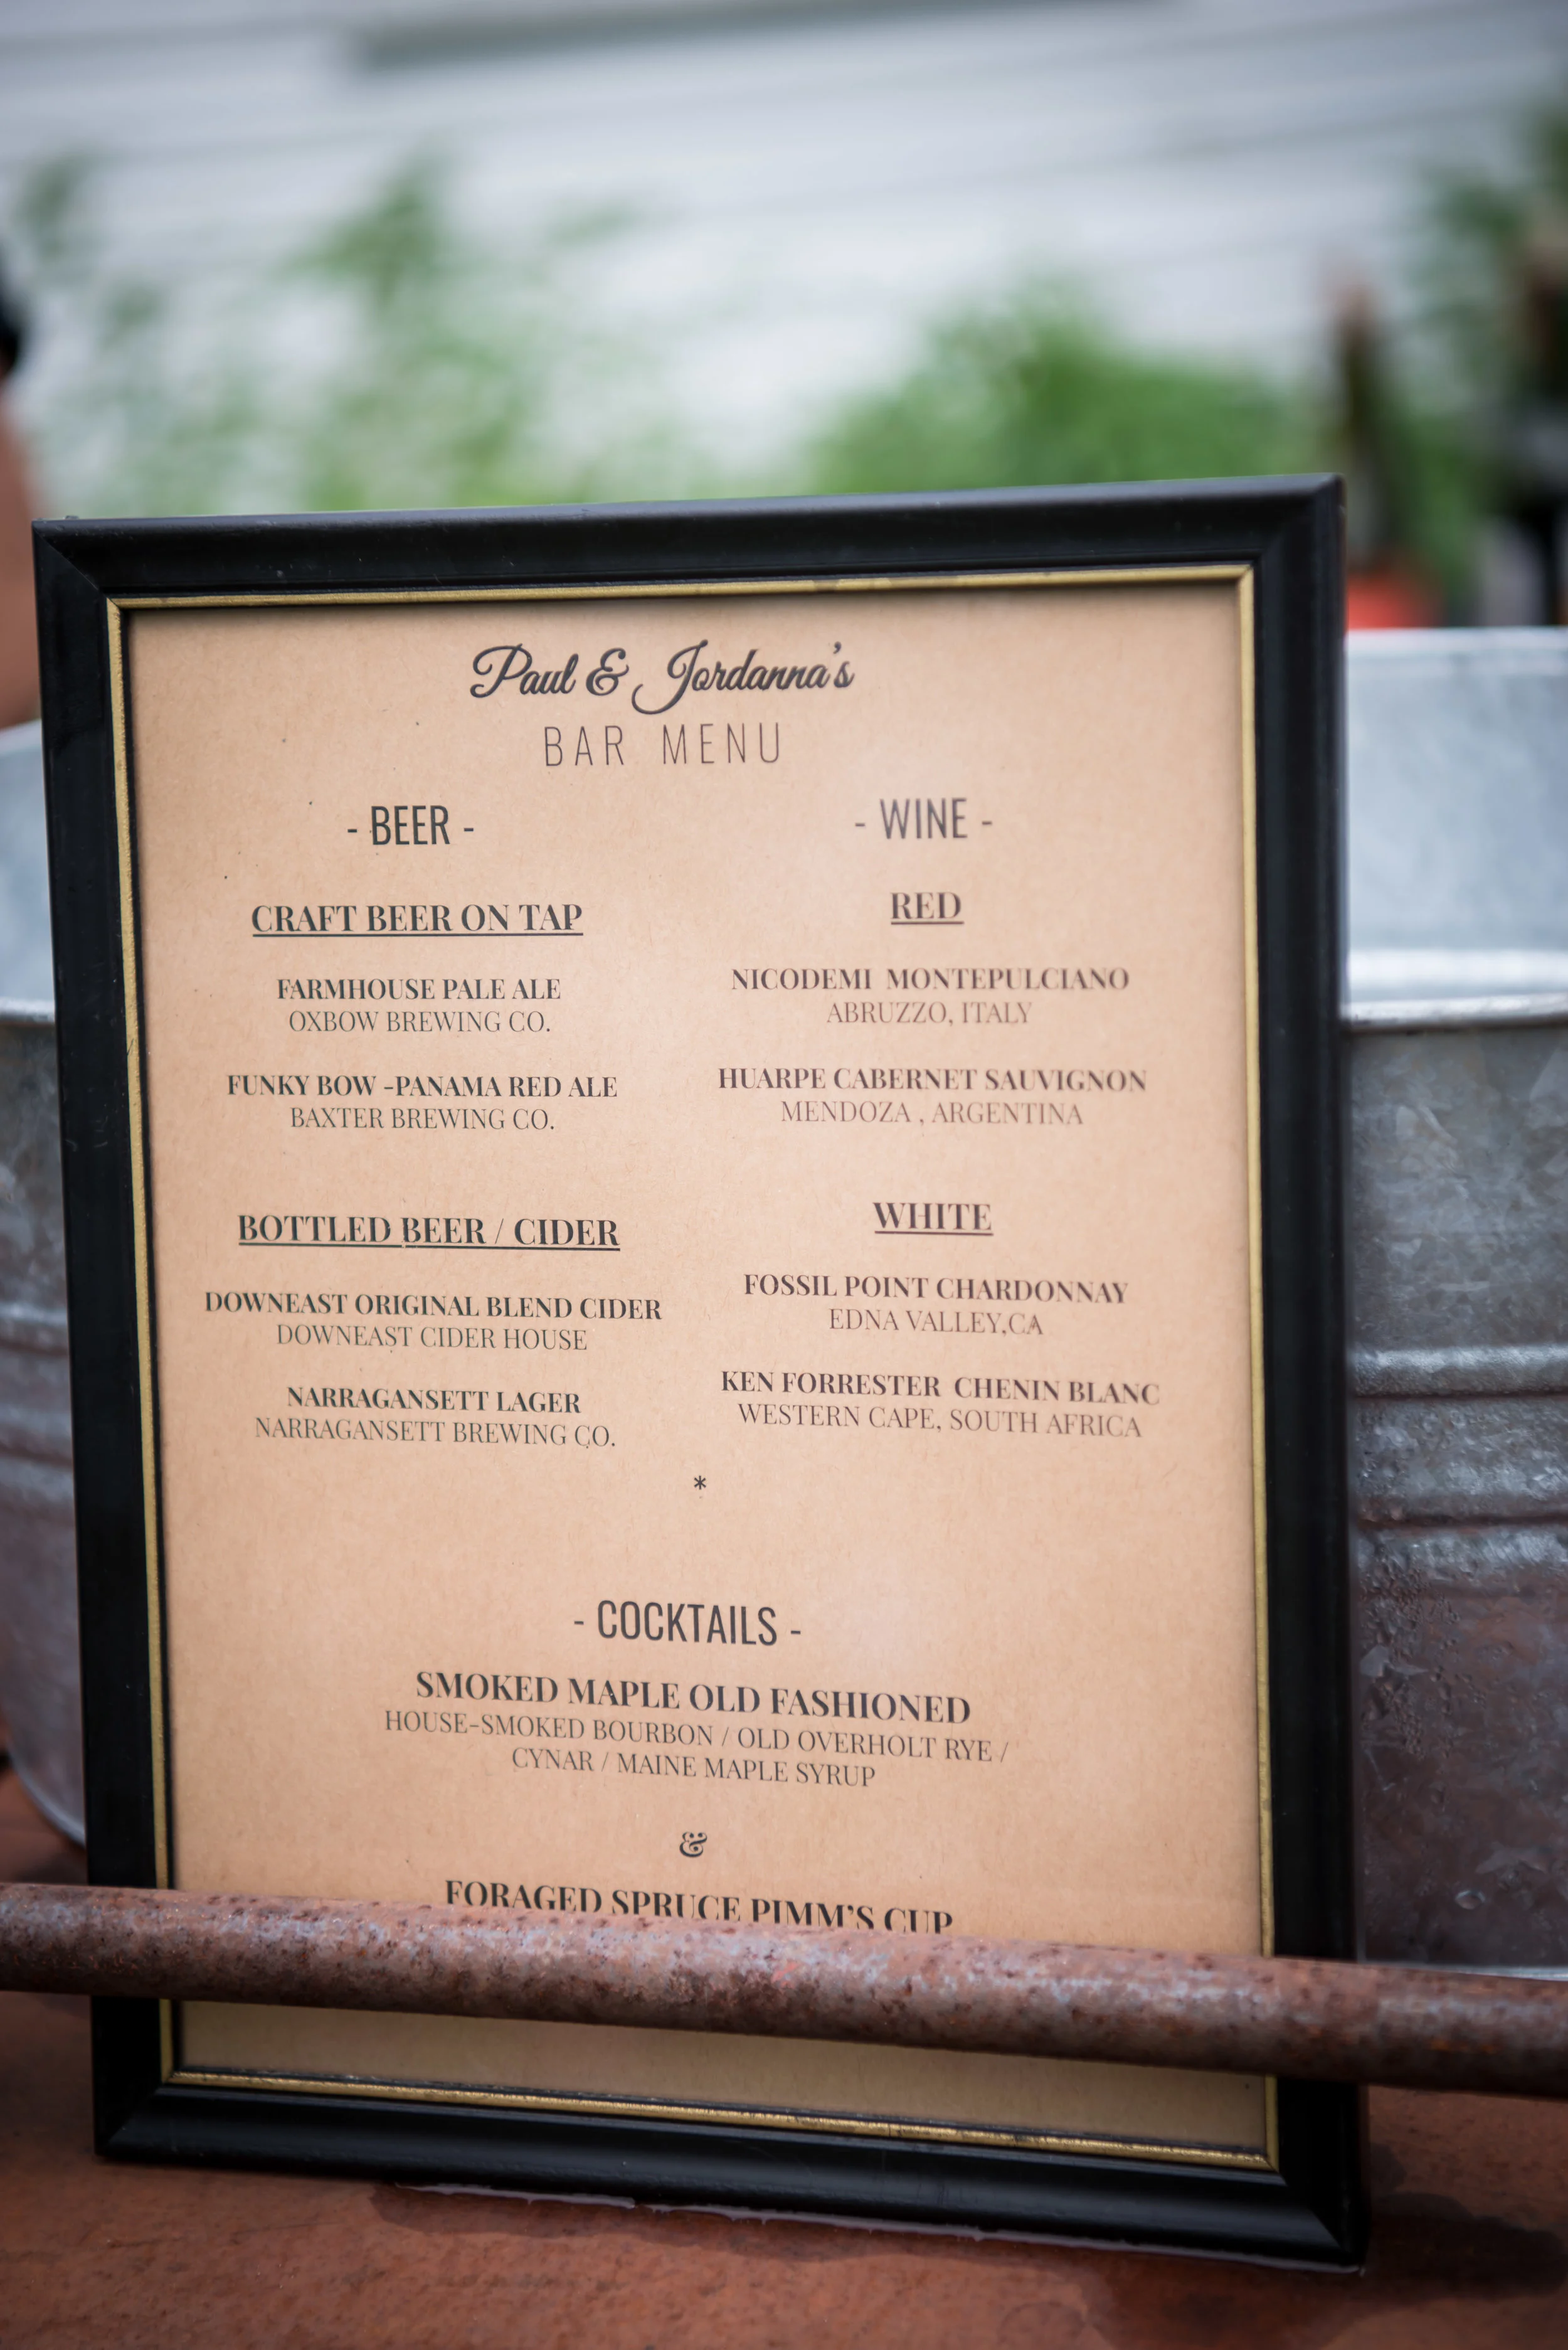 Paul & Jordanna's
BAR MENU
- BEER -
CRAFT BEER ON TAP
FARMHOUSE PALE ALE
OXBOW BREWING CO.
FUNKY BOW -PANAMA RED ALE
BAXTER BREWING CO.
BOTTLED BEER / CIDER
DOWNEAST ORIGINAL BLEND CIDER
DOWNEAST CIDER HOUSE
NARRAGANSETT LAGER
NARRAGANSETT BREWING CO.
- WINE -
RED
NICODEMI MONTEPULCIANO
ABRUZZO, ITALY
HUARPE CABERNET SAUVIGNON
MENDOZA , ARGENTINA
WHITE
FOSSIL POINT CHARDONNAY
EDNA VALLEY,CA
KEN FORRESTER CHENIN BLANC
WESTERN CAPE, SOUTH AFRICA
*
- COCKTAILS -
SMOKED MAPLE OLD FASHIONED
HOUSE-SMOKED BOURBON / OLD OVERHOLT RYE /
CYNAR / MAINE MAPLE SYRUP
&
FORAGED SPRUCE PIMM'S CUP